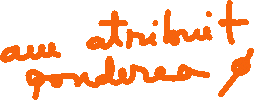 am atribuit
ponderea ϕ